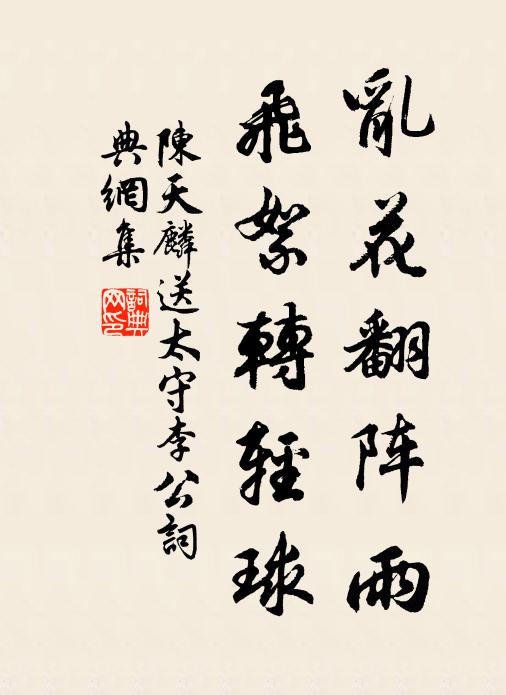 亂花翻阵雨
飛絮轉輕球
陳天麟送太守李公詞
典網集
詞典网印